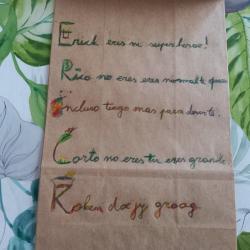 Erick eres mi superheroe!
Rico no eres eres normalte quiero
Incluso tiengo mas para decirte.
Corto no eres tu eres grande
Roken dat jy graag.